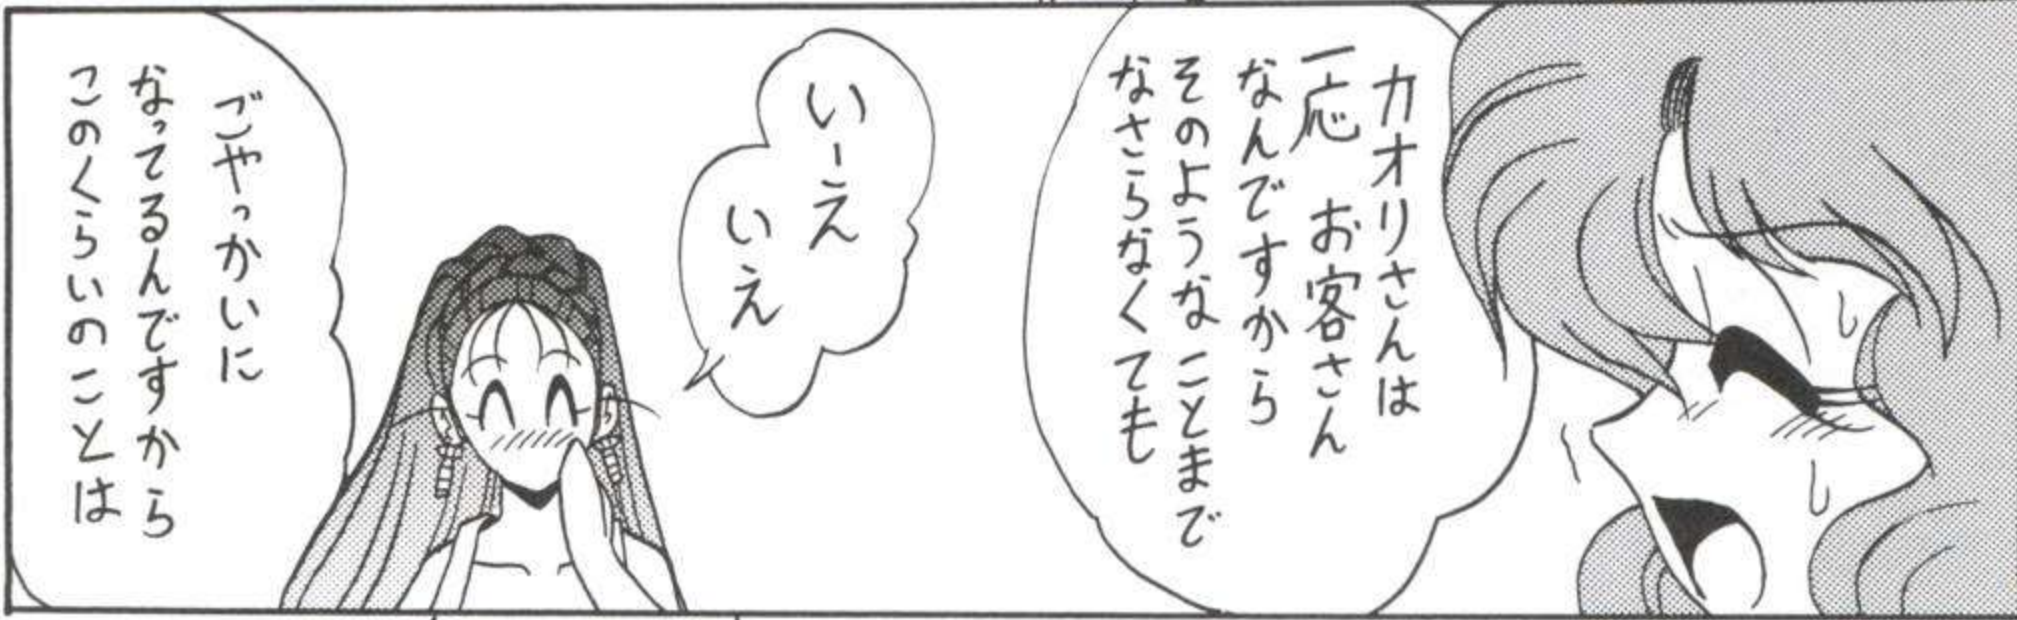 カオリさんは
一応 お客さん
なんですから
そのようなことまで
なさらなくても
いーえ
いえ
ごやっかいに
なってるんですから
このくらいのことは